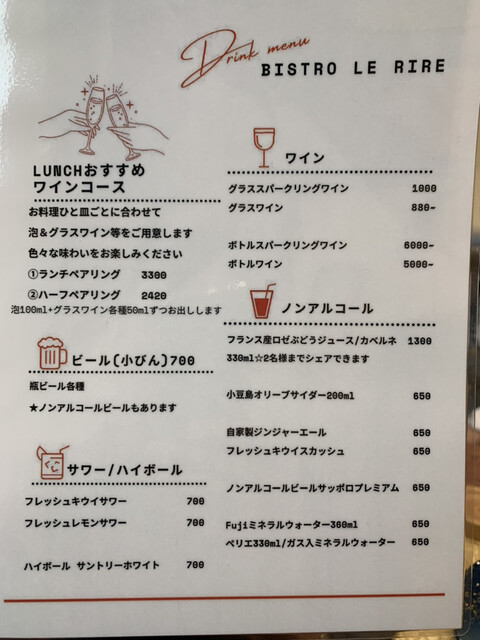 Drink menu
BISTRO LE RIRE
LUNCHおすすめ
ワインコース
お料理ひと皿ごとに合わせて
泡&グラスワイン等をご用意します
色々な味わいをお楽しみください
①ランチペアリング 3300
②ハーフペアリング 2420
泡100ml+グラスワイン各種50mlずつお出しします
ビール(小びん)700
瓶ビール各種
★ノンアルコールビールもあります
サワー/ハイボール
フレッシュキウイサワー 700
フレッシュレモンサワー 700
ハイボール サントリーホワイト 700
ワイン
グラススパークリングワイン 1000
グラスワイン 880~
ボトルスパークリングワイン 6000~
ボトルワイン 5000~
ノンアルコール
フランス産ロゼぶどうジュース/カベルネ 1300
330ml☆2名様までシェアできます
小豆島オリーブサイダー200ml 650
自家製ジンジャーエール 650
フレッシュキウイスカッシュ 650
ノンアルコールビールサッポロプレミアム 650
Fujiミネラルウォーター360ml 650
ペリエ330ml/ガス入ミネラルウォーター 650